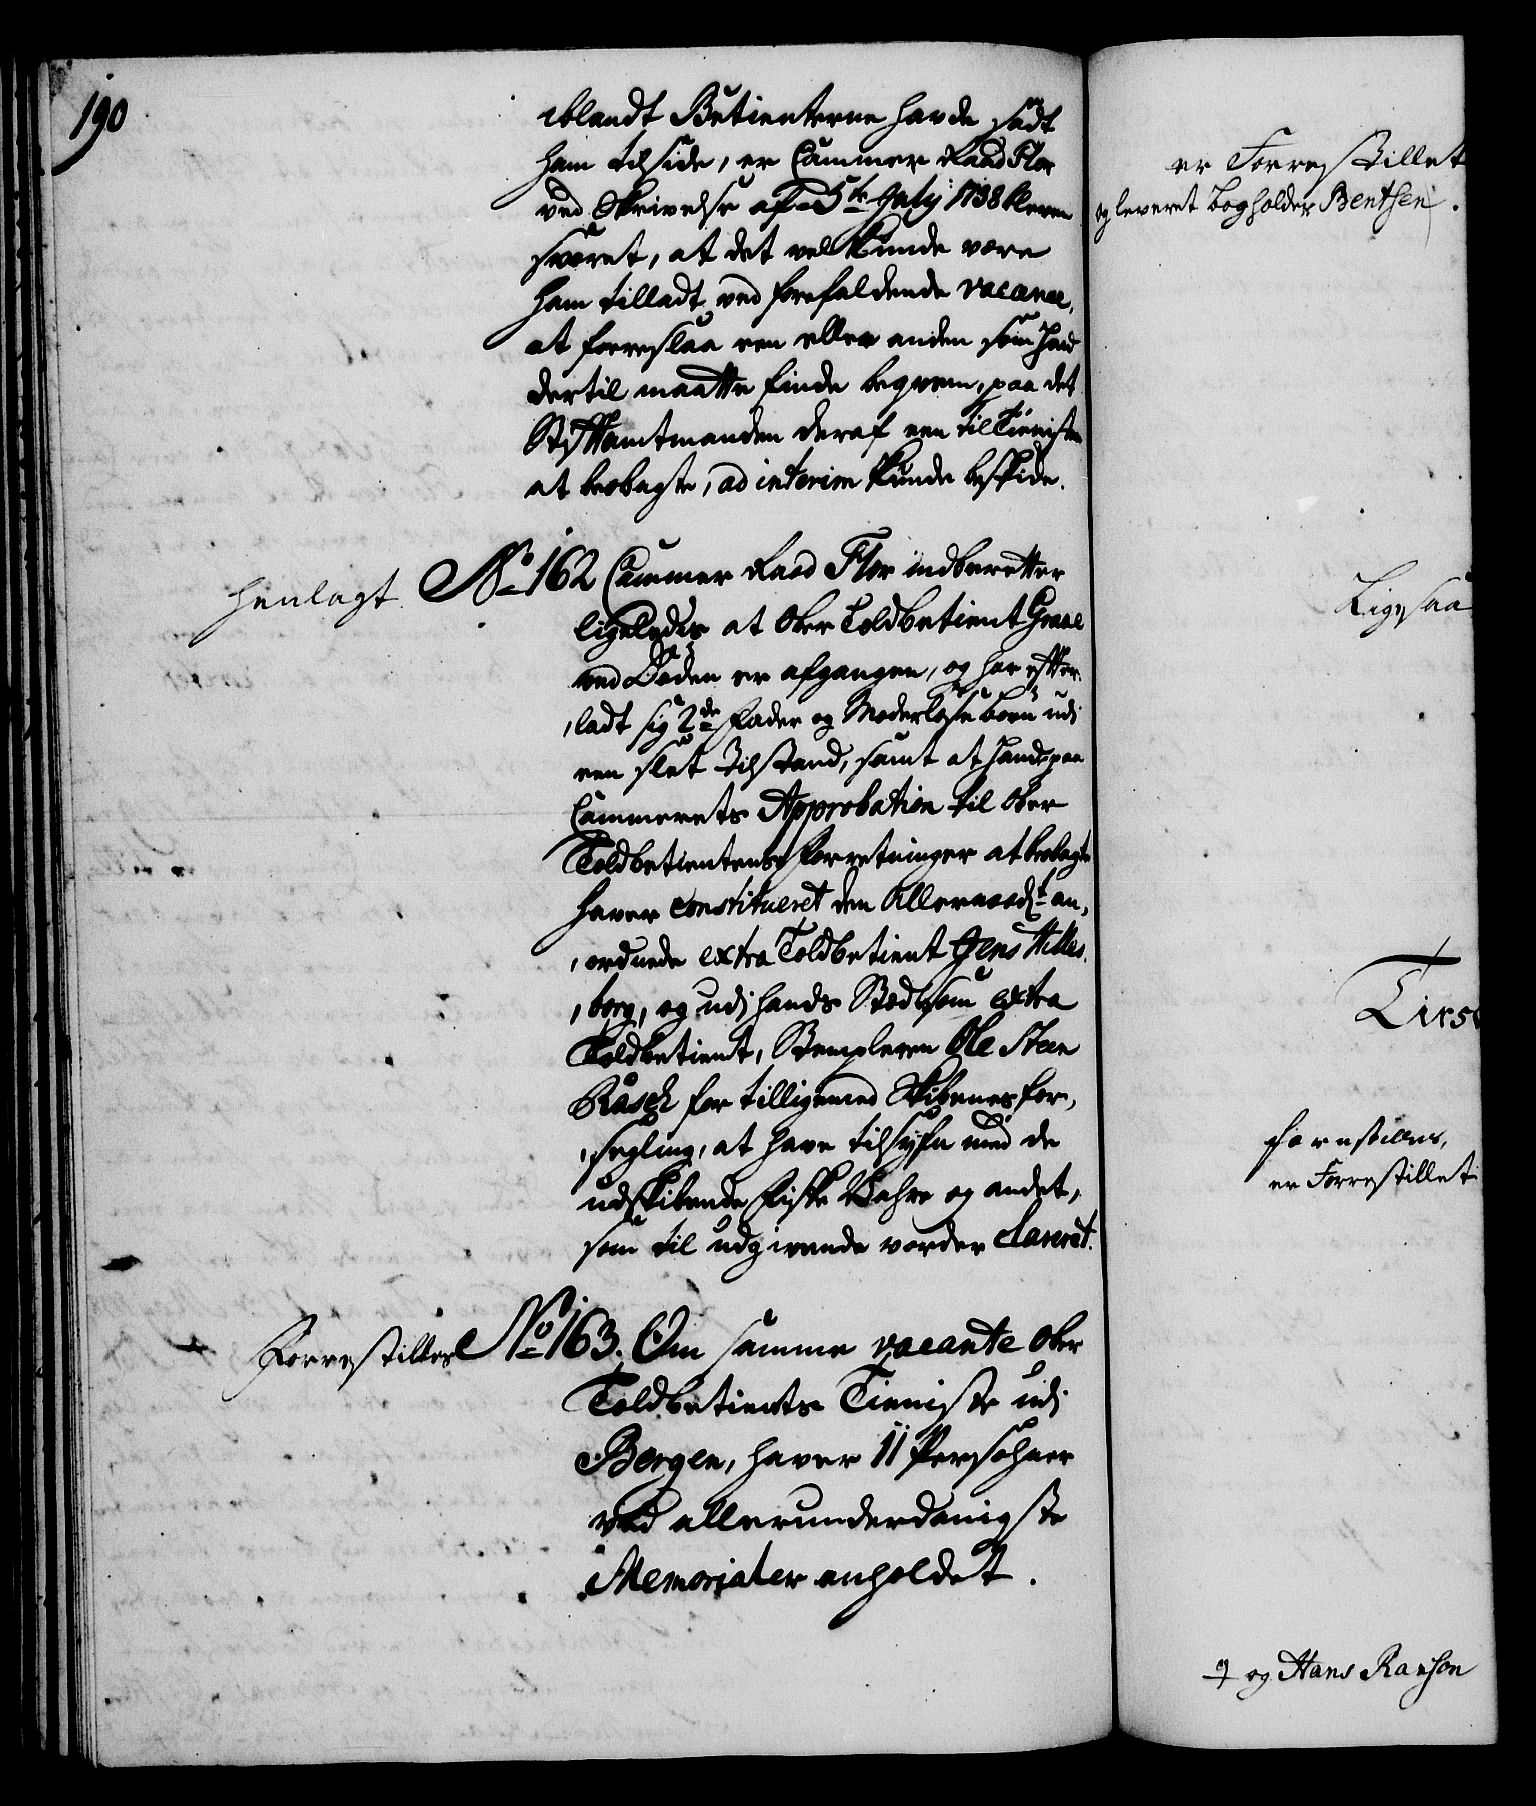 190
iblandt Betienterne havde sadt
ham tilside, er Cammer Raad Flor
ved Skrivelse af 5te July 1738 bleven
svaret, at det vel kunde være
ham tilladt ved forefaldende vacance,
at foreslaa een eller anden som hand
dertil maatte finde beqvem, paa det
Stiftamtmanden deraf een til Tienisten
at beobagte, ad interim kunde beskike.
henlagt No 162 Cammer Raad Flor indberetter
ligeledes at Ober Toldbetient Graae
ved Døden er afgangen, og har efter-
ladt sig 2de Fader og Moderløse børn udi
een slet tilstand, samt at hand paa
Cammerets Approbation til Ober
Toldbetientens forretninger at beobagte
haver constitueret den Allernaadst an-
ordnede extra Toldbetient Jens Hilles-
borg, og udj hands Sted som extra
Toldbetient, Stempleren Ole Steen
Rasch for tilligemed Skibenes for-
segling, at have tilsyfn med de
udskibende Fiske Vahre og andet,
som til udgivende vorder clareret.
Forrestilles No 163. Om samme vacante Ober
Toldbetients Tieniste udj
Bergen, haver 11 Persohner
ved allerunderdanigste
Memorialer anholdet.
er Forrestillet
og leveret bogholder Benthen.
Ligesaa
forestilles,
er Forrestillet
og Hans Ranson